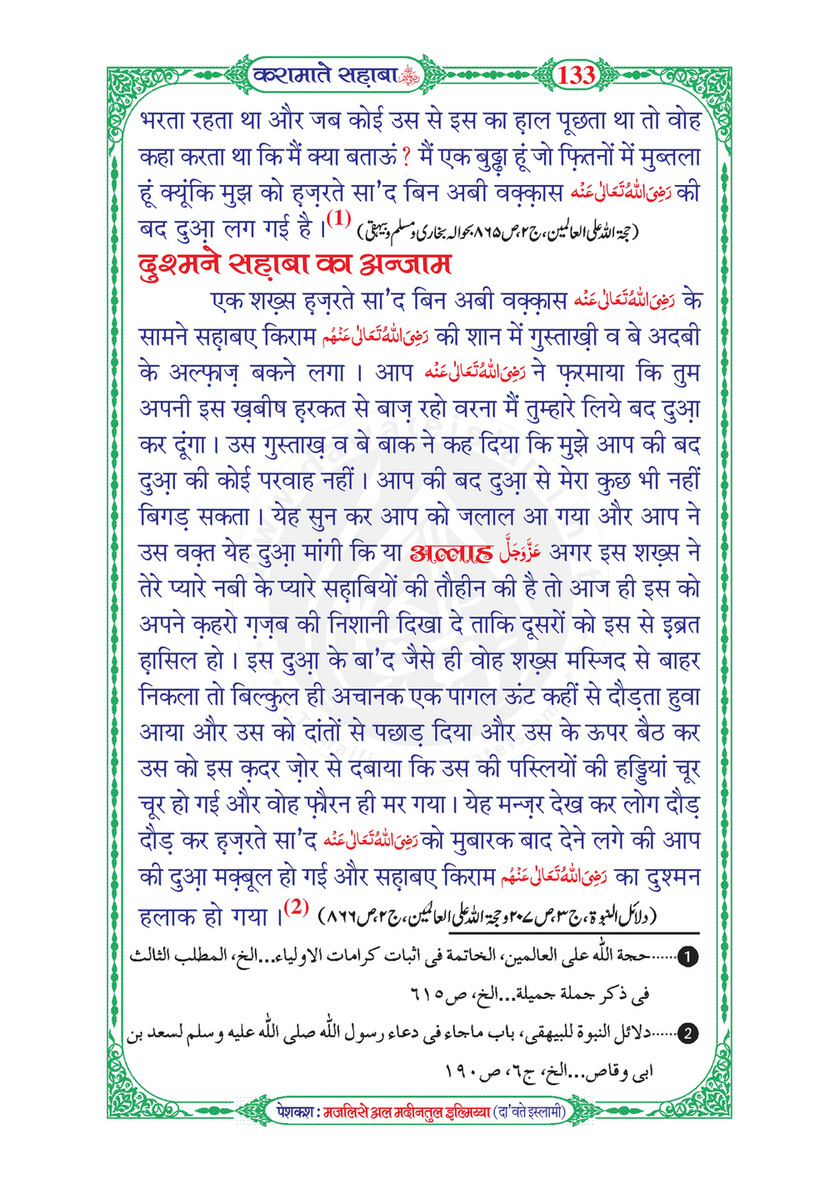 करामाते सह़ाबा
133
भरता रहता था और जब कोई उस से इस का ह़ाल पूछता था तो वोह
कहा करता था कि मैं क्या बताऊं ? मैं एक बुढ्ढा हूं जो फ़ितनों में मुब्तला
हूं क्यूंकि मुझ को ह़ज़रते सा'द बिन अबी वक़्क़ास رَضِىَ اللّٰهُ تَعَالٰى عَنْه की
बद दुआ़ लग गई है ।(1) (حجۃ اللہ علی العالمین، ج۲، ص۸۶۵ بحوالہ بخاری ومسلم وبیہقی)
दुश्मने सह़ाबा का अन्जाम
एक शख़्स ह़ज़रते सा'द बिन अबी वक़्क़ास رَضِىَ اللّٰهُ تَعَالٰى عَنْه के
सामने सह़ाबए किराम رَضِىَ اللّٰهُ تَعَالٰى عَنْهُم की शान में गुस्ताख़ी व बे अदबी
के अल्फ़ाज़ बकने लगा । आप رَضِىَ اللّٰهُ تَعَالٰى عَنْه ने फ़रमाया कि तुम
अपनी इस ख़बीष ह़रकत से बाज़ रहो वरना मैं तुम्हारे लिये बद दुआ़
कर दूंगा । उस गुस्ताख़ व बे बाक ने कह दिया कि मुझे आप की बद
दुआ़ की कोई परवाह नहीं । आप की बद दुआ़ से मेरा कुछ भी नहीं
बिगड़ सकता । येह सुन कर आप को जलाल आ गया और आप ने
उस वक़्त येह दुआ़ मांगी कि या अल्लाह عَزَّوَجَلَّ अगर इस शख़्स ने
तेरे प्यारे नबी के प्यारे सह़ाबियों की तौहीन की है तो आज ही इस को
अपने क़हरो ग़ज़ब की निशानी दिखा दे ताकि दूसरों को इस से इ़ब्रत
ह़ासिल हो । इस दुआ़ के बा'द जैसे ही वोह शख़्स मस्जिद से बाहर
निकला तो बिल्कुल ही अचानक एक पागल ऊंट कहीं से दौड़ता हुवा
आया और उस को दांतों से पछाड़ दिया और उस के ऊपर बैठ कर
उस को इस क़दर ज़ोर से दबाया कि उस की पस्लियों की हड्डियां चूर
चूर हो गई और वोह फ़ौरन ही मर गया । येह मन्ज़र देख कर लोग दौड़
दौड़ कर ह़ज़रते सा'द رَضِىَ اللّٰهُ تَعَالٰى عَنْه को मुबारक बाद देने लगे की आप
की दुआ़ मक़्बूल हो गई और सह़ाबए किराम رَضِىَ اللّٰهُ تَعَالٰى عَنْهُم का दुश्मन
हलाक हो गया ।(2) (دلائل النبوۃ، ج۳، ص۲۰۷ وحجۃ اللہ علی العالمین، ج۲، ص۸۶۶)
1 ......حجة الله على العالمين، الخاتمة فى اثبات كرامات الاولياء...الخ، المطلب الثالث
فى ذكر جملة جميلة...الخ، ص٦١٥
2 ......دلائل النبوة للبيهقى، باب ماجاء فى دعاء رسول الله صلى الله عليه وسلم لسعد بن
ابى وقاص...الخ، ج٦، ص١٩٠
पेशकश : मजलिसे अल मदीनतुल इल्मिय्या (दा'वते इस्लामी)